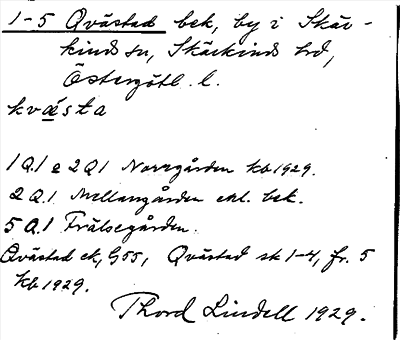 1-5 Qvästad bek, by i Skär-
kinds sn, Skärkinds hd,
Östergötl. l.
kvästa
1 Q.1 e 2 Q1 Norrgården kb 1929.
2 Q.1 Mellangården enl. bek.
5 Q.1 Frälsegården.
Qvästad ek, G55, Qvästad sk 1-4, fr. 5
kb 1929.
Thord Lindell 1929.